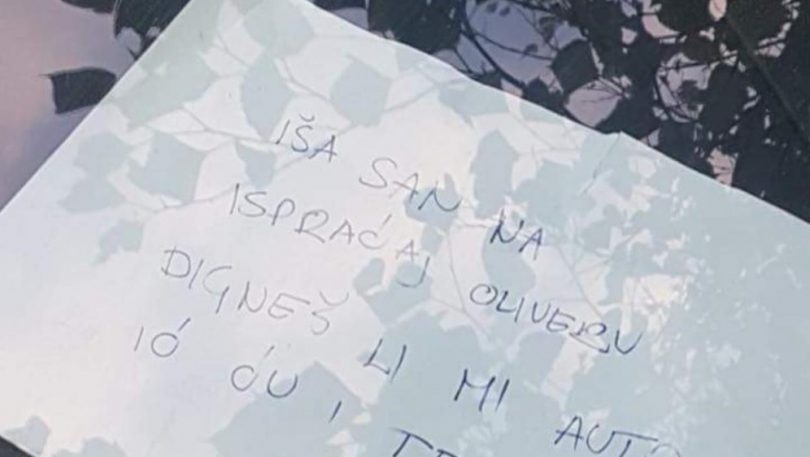 IŠA SAN NA
ISPRAĆAJ OLIVERU
DIGNEŠ LI MI AUTO
IĆ ĆU I